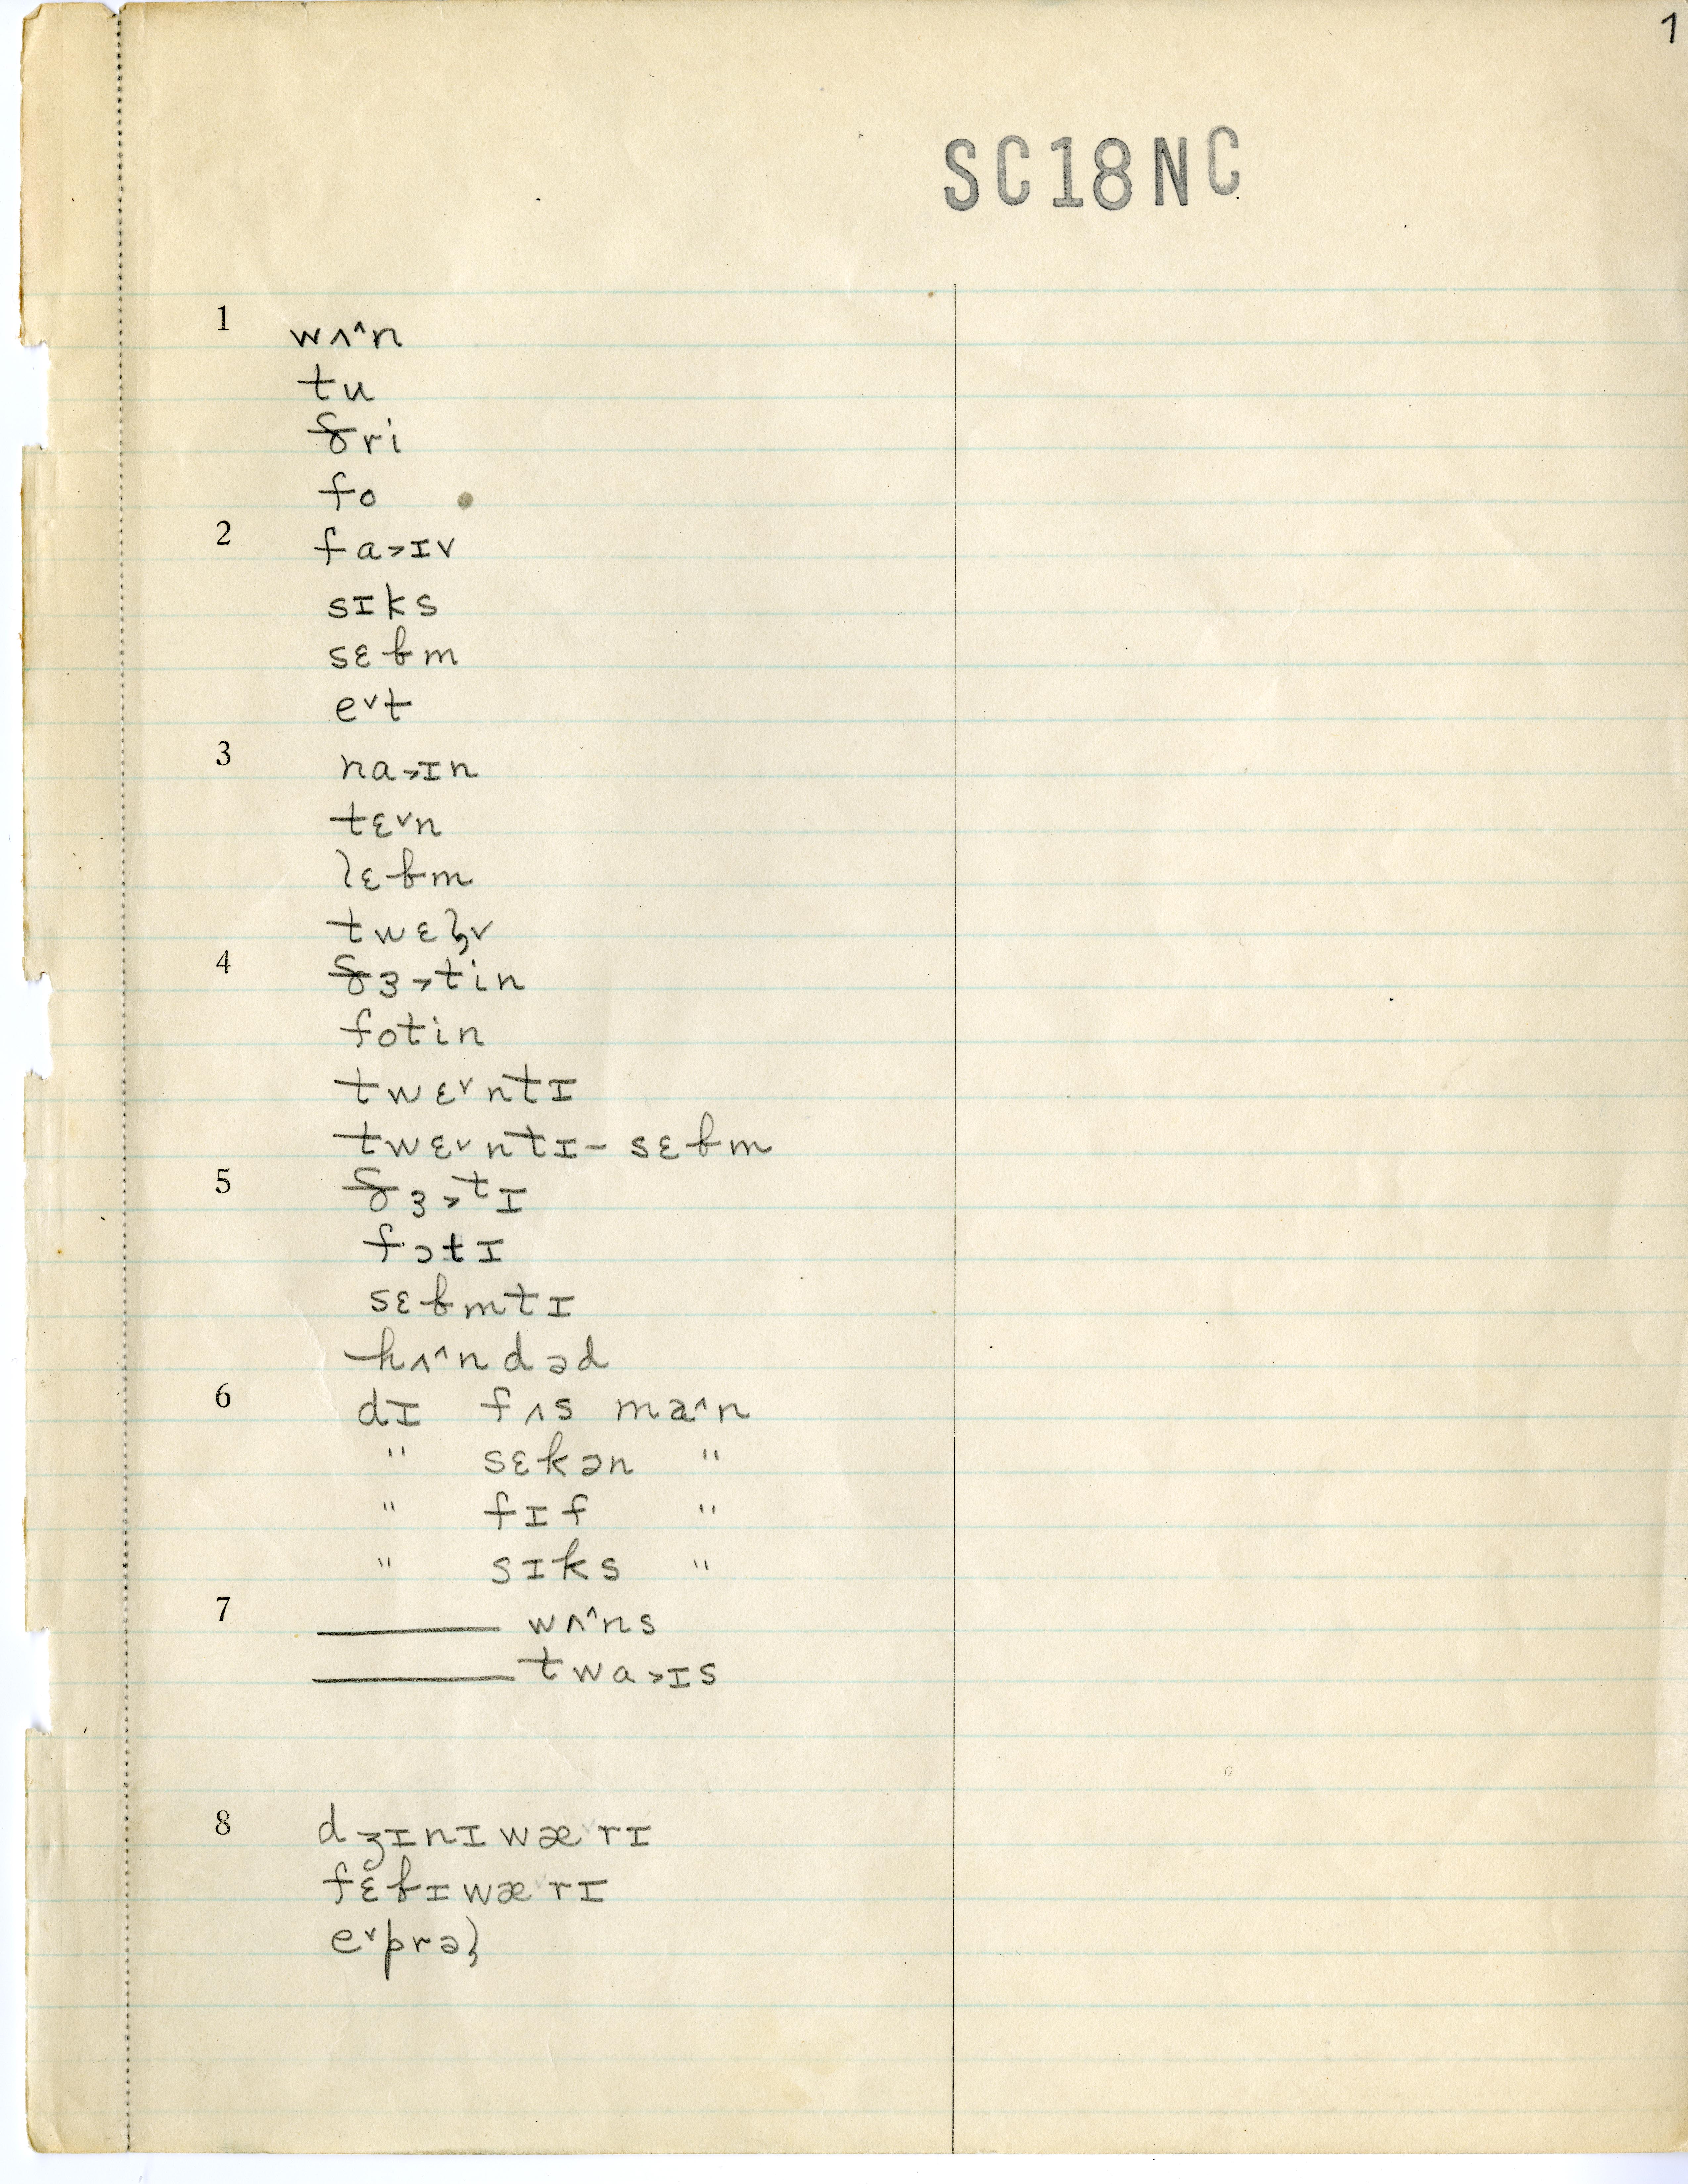 1
SC18NC
1 wʌ˄n
tu
ꟈri
fo
2 fa˃ɪv
sɪks
sɛbm
e˅t
3 na˃ɪn
tɛ˅n
lɛbm
twɛl̦v
4 ꟈɜ˃tin
fotin
twɛ˅ntɪ
twɛ˅ntɪ- sɛbm
5 ꟈɜ˃tɪ
fɔtɪ
sɛbmtɪ
hʌ˄ndəd
6 dɪ fʌs ma˄n
" sɛkən "
" fɪf "
" sɪks "
7 ______ wʌ˄ns
______ twa˃ɪs
8 dʒɪnɪwæ˅rɪ
fɛbɪwæ˅rɪ
e˅prəl